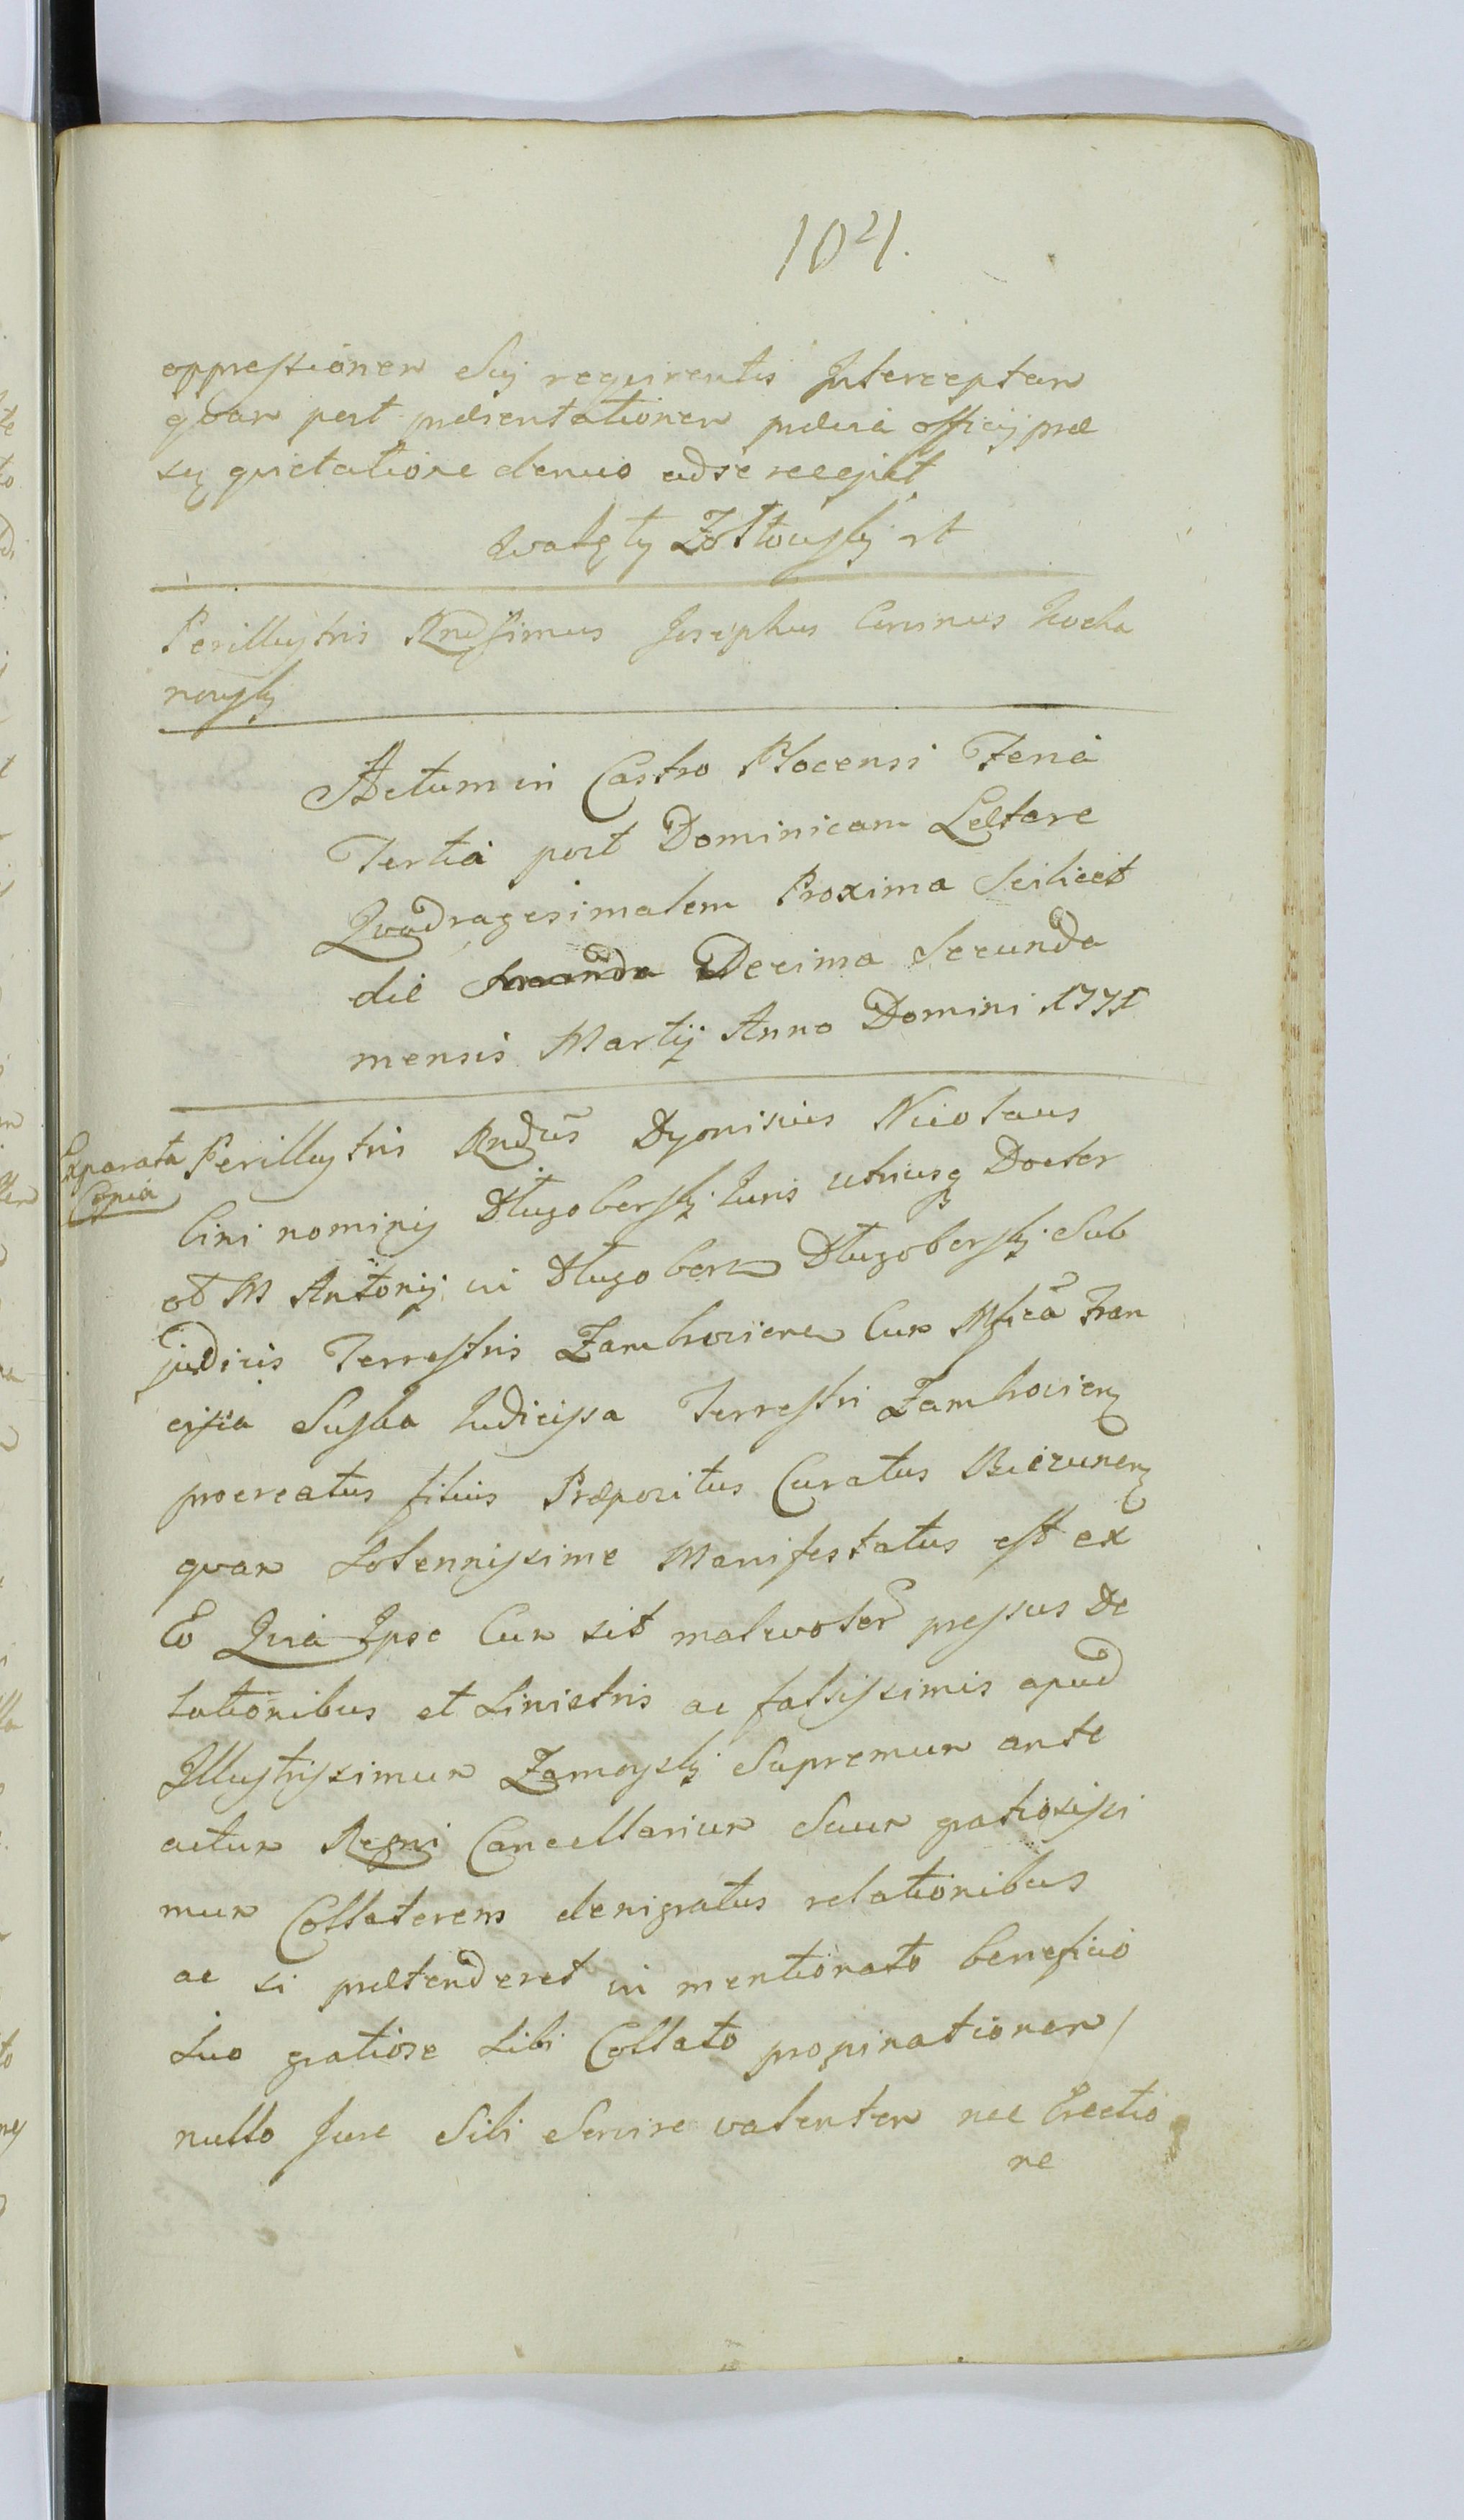 1021.
oppressionem Sui requirentis Interceptam
qvam post præsentationem prævia officij præ
sen quietatione denuo ad se recepit
Walęty Zołtowskj rt
Perillustris Rndssimus Josephus Cursinus Kocha
nowskj
Actum in Castro Plocensi Feria
Tertia post Dominicam Lætare
Qvadragesimalem Proxima Scilicet
die Decima Secunda
mensis Martij Anno Domini 1771
Exparata
Copia
Perillustris Rndus Dyonisius Nicolaus
bini nominis Dlugoberskj Juris utriusq Doctor
et M Antonij in Dlugobory Dlugoberskj Sub
judicis Terrestris Zambrovien Cum Mfica Fran
cisca Suska Judicissa Terrestri Zambrovien
procreatus filius Præpositus Curatus Biezunen
qvam Solennissime Manifestatus est ex
Eo Qvia Ipse Cum sit malevoler pressus De
lationibus et Sinistris ac falsissimis apud
Illustrissimum Zamoyskj Supremum ante
actum Regni Cancellarium Suum gratiosissi
mum Collatorem denigratus relationibus
ac si prætenderet in mentionato beneficio
Suo gratiose Sibi Collato propinationem
nullo Jure Sibi Servire valentem nec Erectio
ne